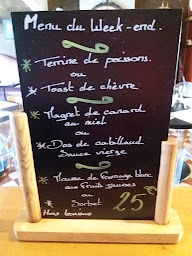 Menu du Week-end.
* Terrine de poissons.
ou
* Toast de chèvre
* Magret de canard
au miel
ou
* Dos de cabillaud
Sauce vierge
* Mousse de fromage blanc
aux fruits jaunes
ou
* Sorbet
25
Hors boissons